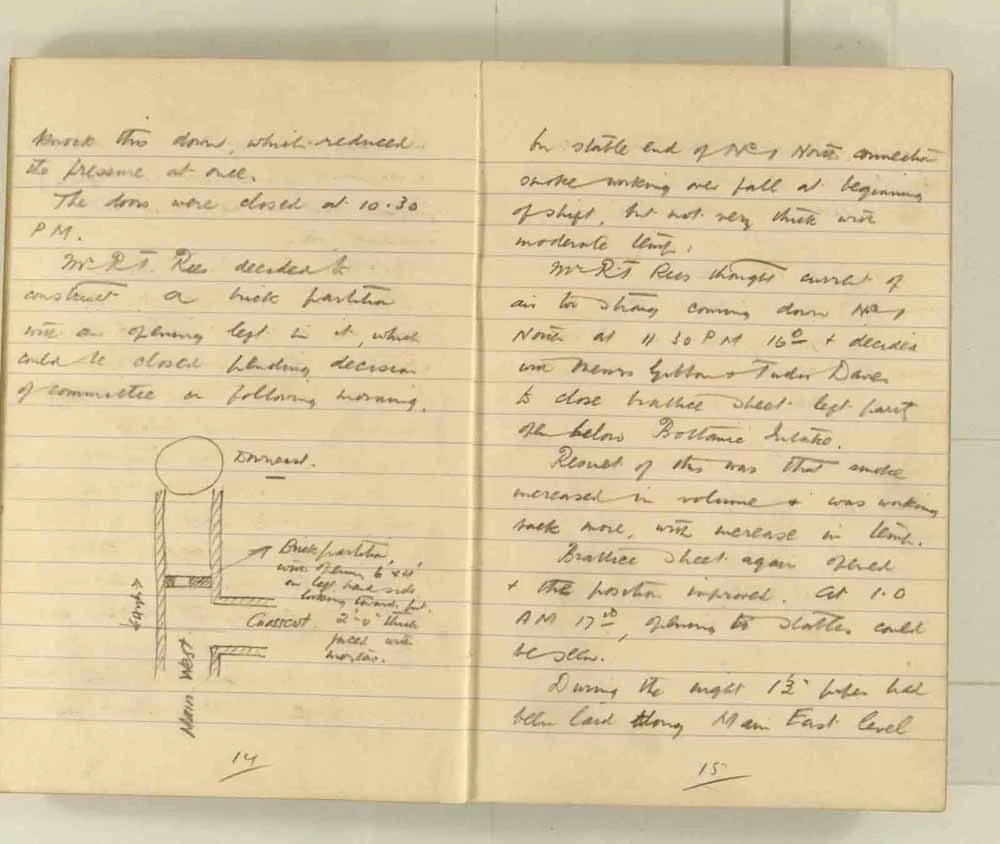 knock this down, which reduced
the pressure at once.
The doors were closed at 10.30
P.M.
Mr R.T. Rees decided to
construct a brick partition
with an opening left in it, which
could be closed pending decision
of committee on following morning.
Downcast.
Brick partition,
with opening 6' x 4'
on left hand side
looking towards pit.
2'-0" thick
faced with
mortar.
Crosscut.
Main West
14
In stable end of No 1 North connection
smoke working over fall at beginning
of shift, but not very thick with
moderate temp.
Mr R T Rees thought current of
air too strong coming down No 1
North at 11 30 P M 16th + decided
with Messrs Gibbon + Tudor Davies
to close brattice sheet left part
open below Bottanic Intake.
Result of this was that smoke
increased in volume + was working
back more, with increase in temp.
Brattice sheet again opened
+ the position improved. At 1.0
AM 17th, opening to stables could
be seen.
During the night 1½" pipes had
been laid along Main East level
15